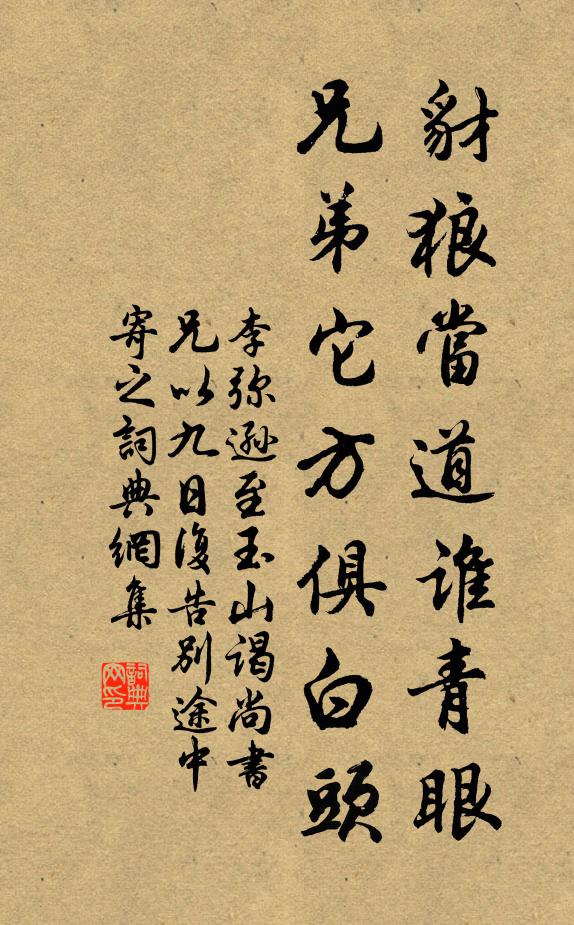 豺狼當道誰青眼
兄弟它方俱白頭
李弥遜至玉山謁尚書
兄以九日復告别途中
寄之詞典網集
詞典
网印